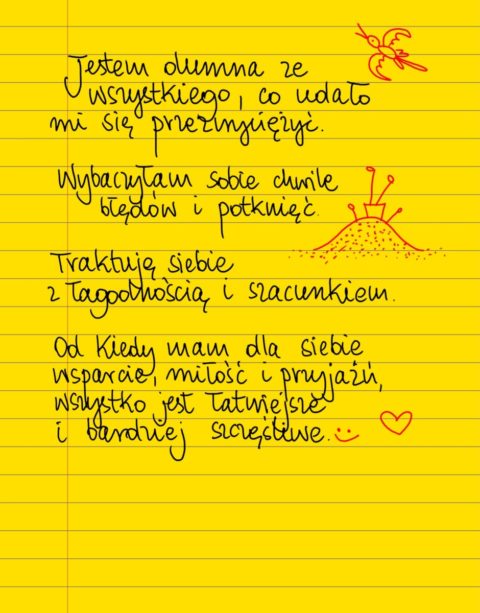 Jestem dumna ze
wszystkiego, co udało
mi się przezwyciężyć.
Wybaczyłam sobie chwile
błędów i potknięć.
Traktuję siebie
z łagodnością i szacunkiem.
Od kiedy mam dla siebie
wsparcie, miłość i przyjaźń,
wszystko jest łatwiejsze
i bardziej szczęśliwe.